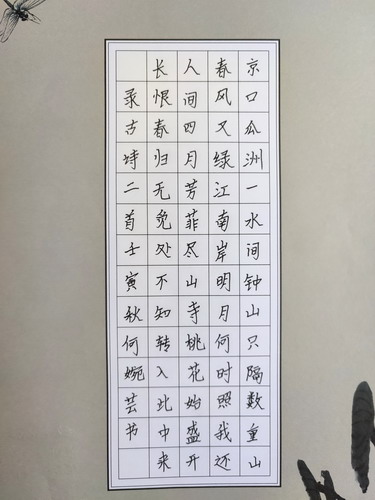 京口瓜洲一水间钟山只隔数重山
春风又绿江南岸明月何时照我还
人间四月芳菲尽山寺桃花始盛开
长恨春归无觅处不知转入此中来
录古诗二首壬寅秋何婉芸书